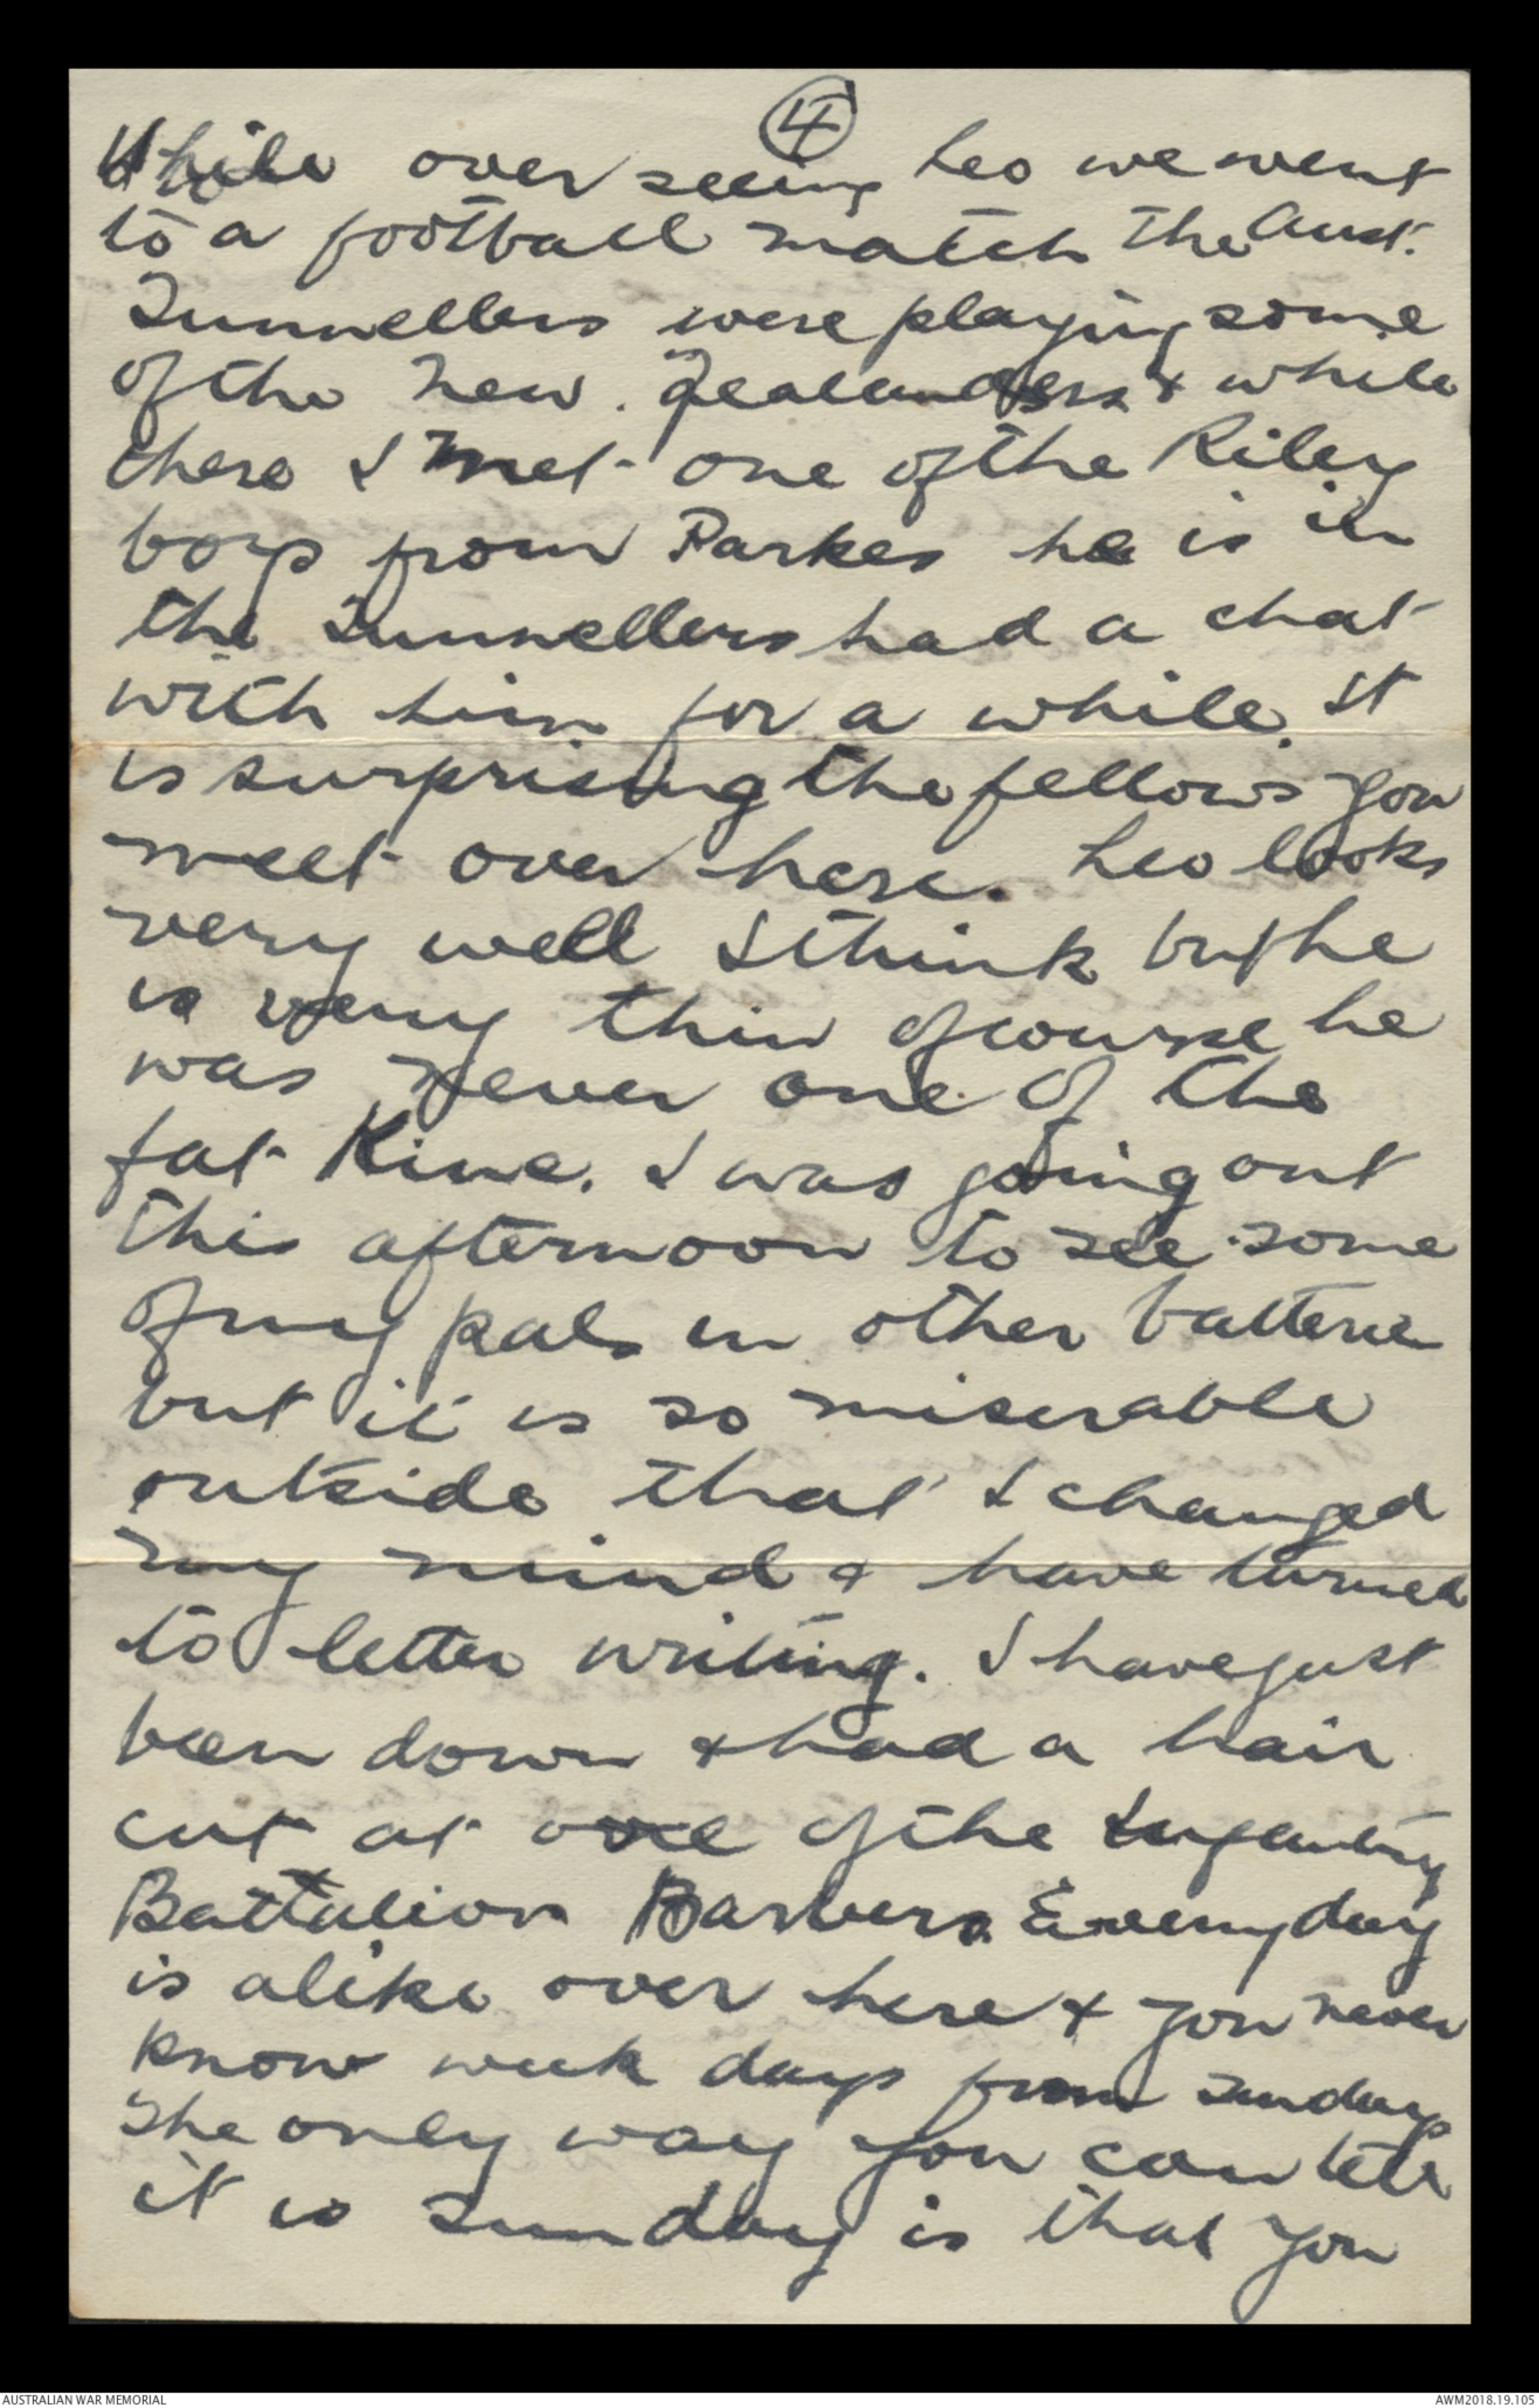 4
While over seeing Leo we went
to a football match the Aust.
Tunnellers were playing some
of the New. Zealanders & while
there I met one of the Riley
boys from Parkes he is in
the Tunnellers had a chat
with him for a while. It
is surprising the fellows you
meet over here. Leo looks
very well I think but he
is very thin of course he
was never one of the
fat Kine. I was going out
this afternoon to see some
of my pals in other batterie
but it is so miserable
outside that I changed
my mind & have turned
to letter writing. I have just
been down & had a hair
cut at one of the Infantry
Battalion Barbers. Every day
is alike over here & you never
know week days from Sundays
The only way you can tell
it is Sunday is that you
AUSTRALIAN WAR MEMORIAL
AWM2018.19.105